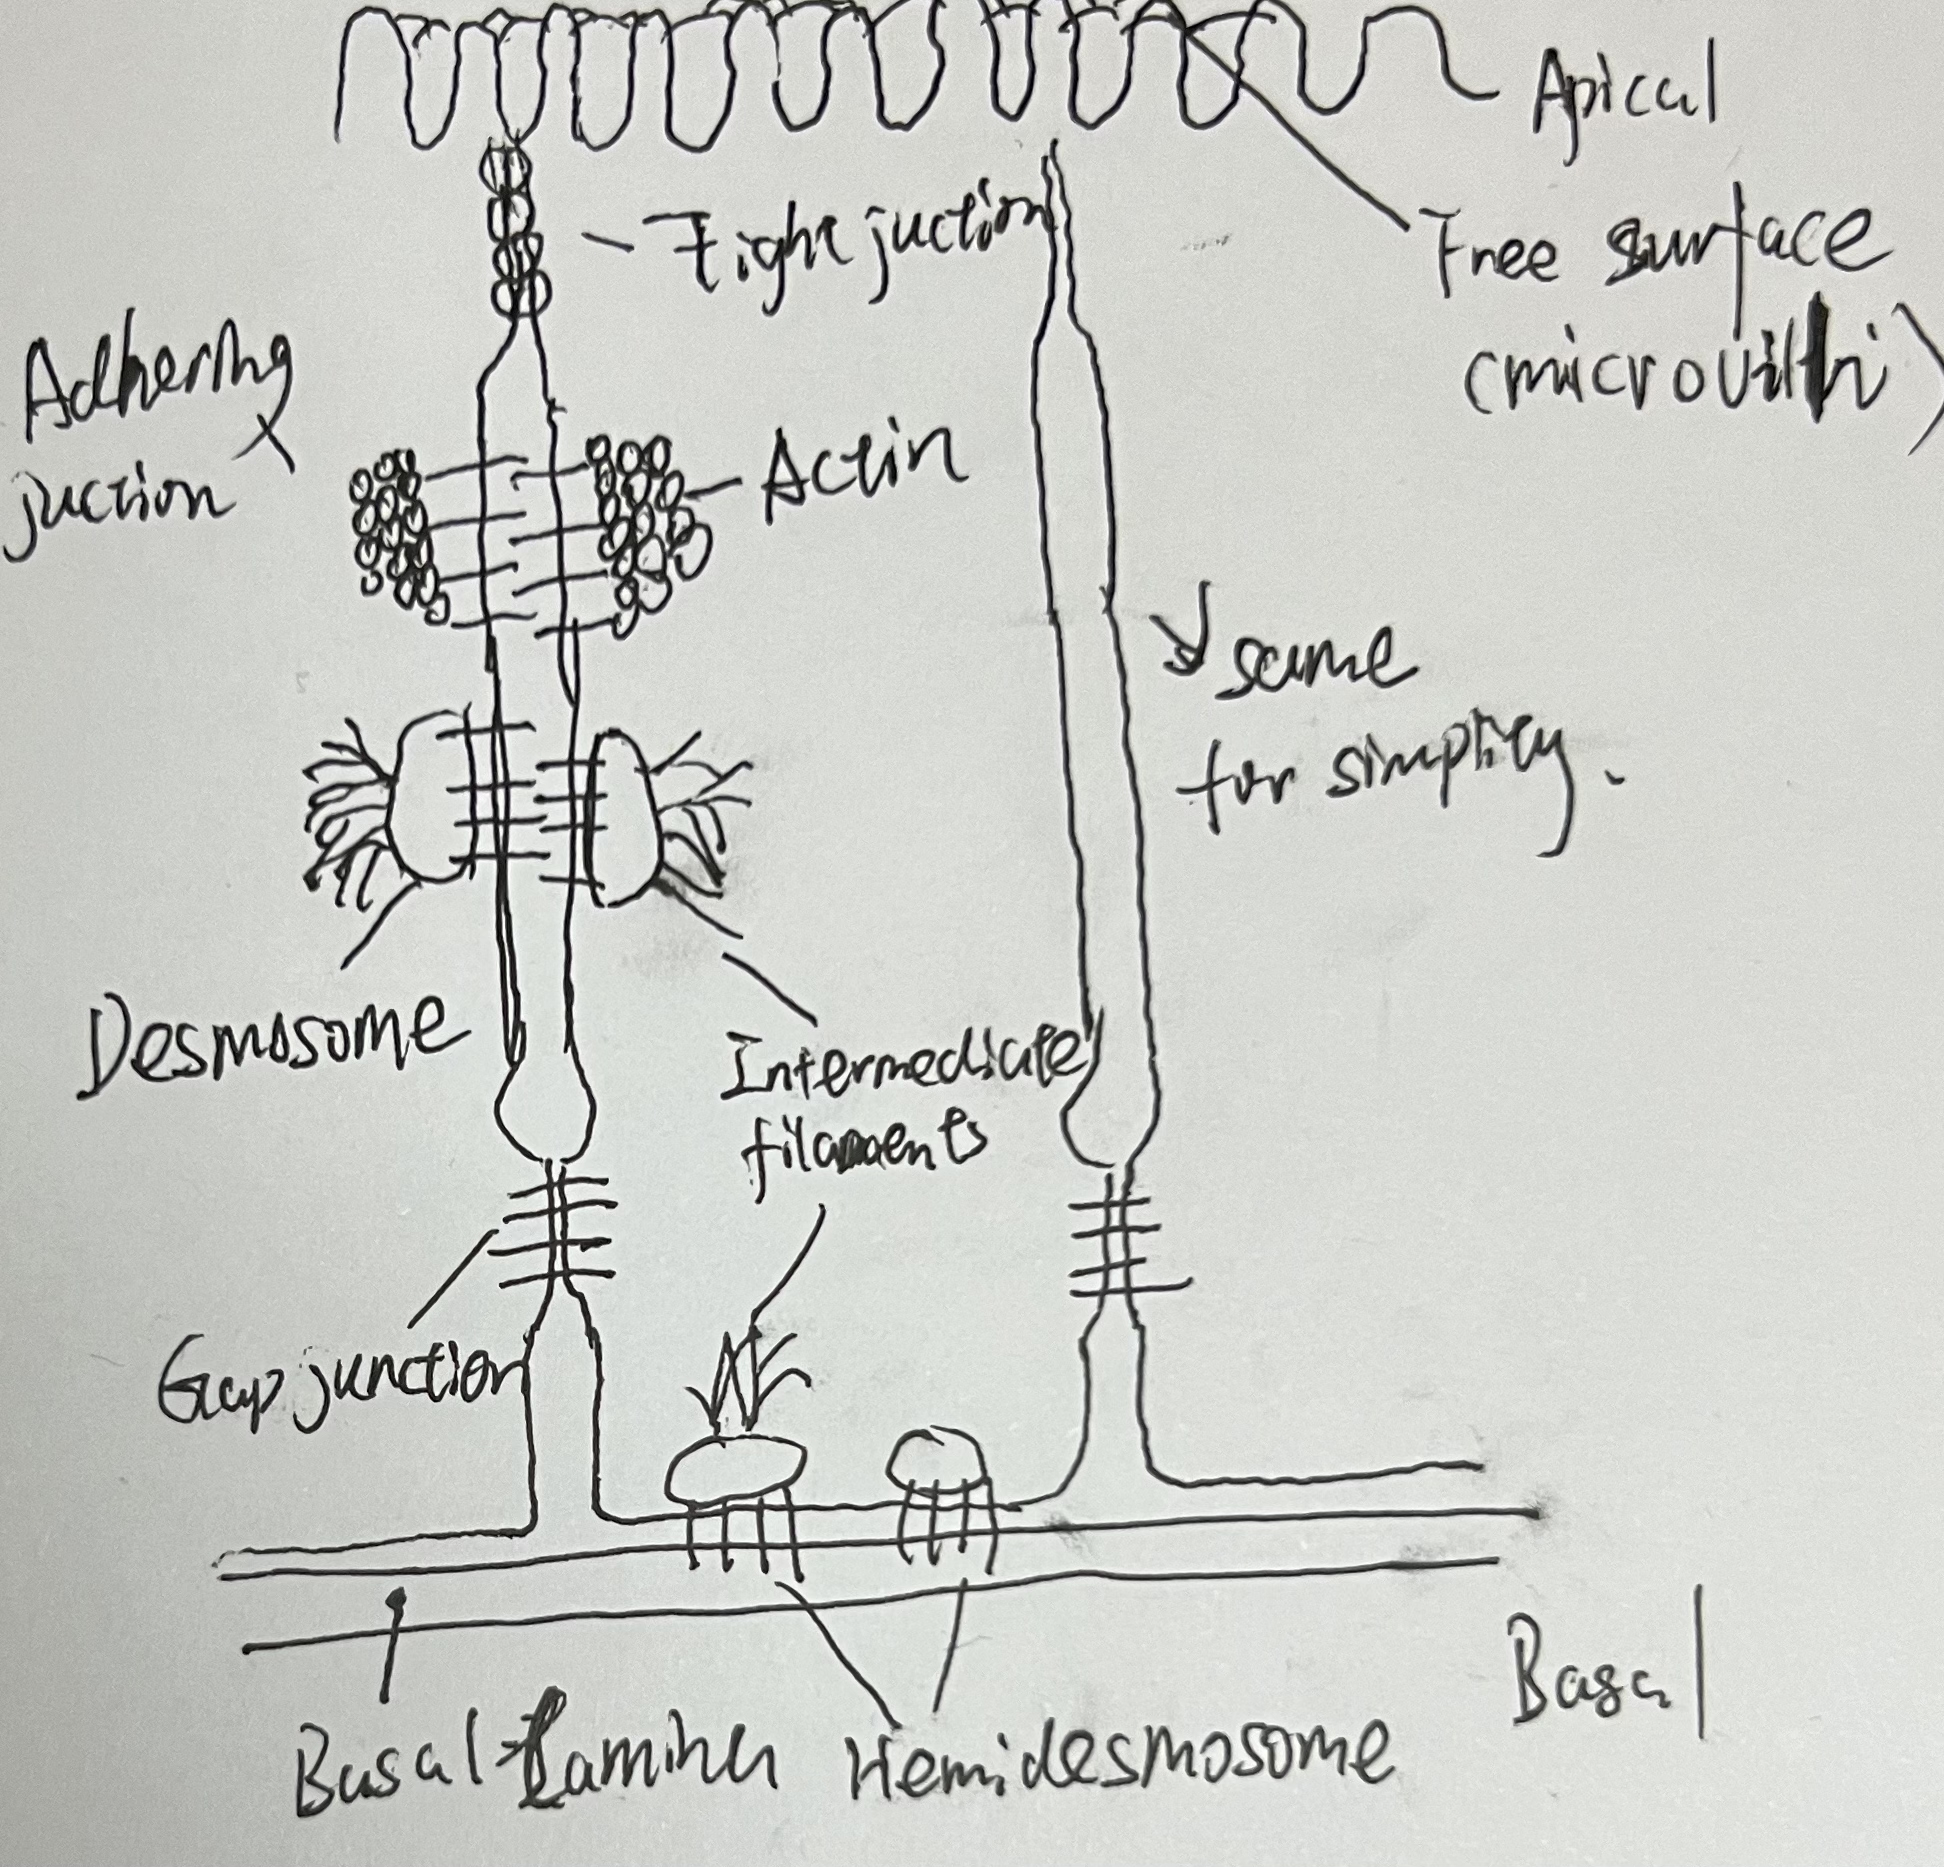 Apical
Tight juction
Free surface
(microvilli)
Adhering
juction
Actin
same
for simplity.
Desmosome
Intermediate
filaments
Gap junction
Basal
Basal Lamina
Hemidesmosome